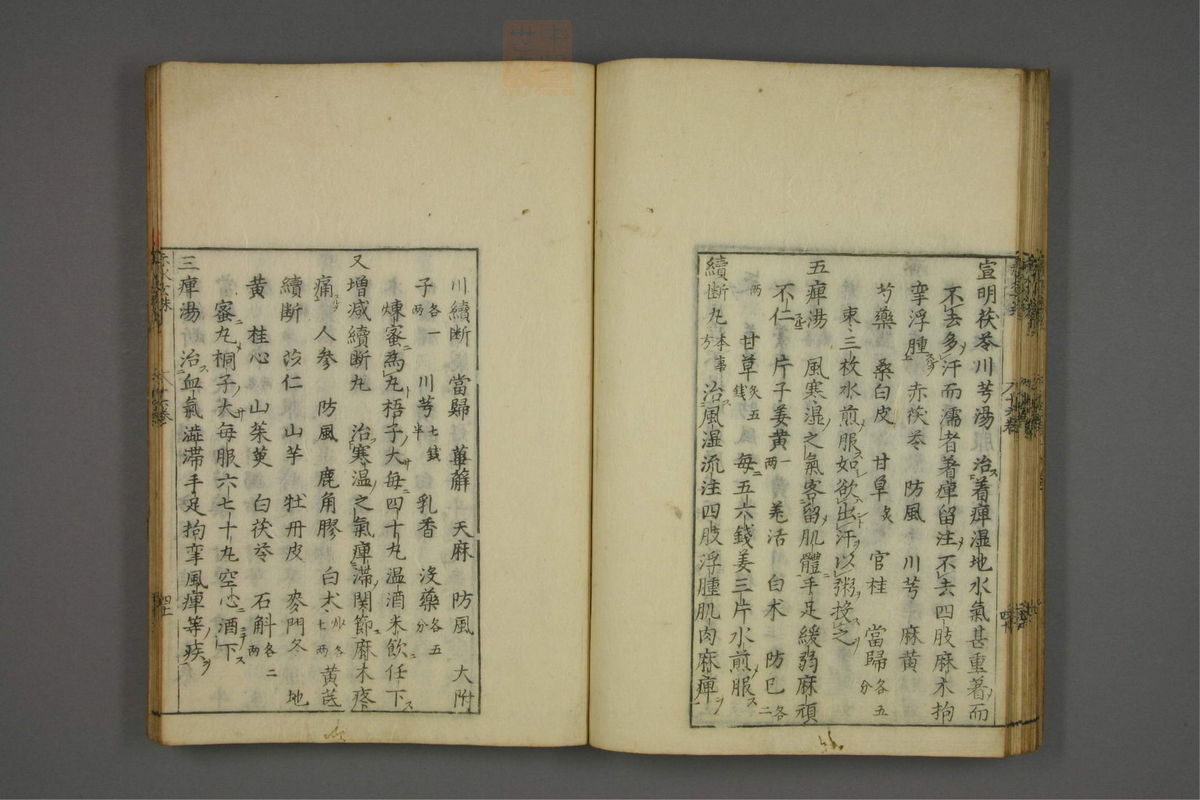 宣明茯苓川芎湯治着痺湿地水氣甚重着而
不去多汗而濡者着痺留注不去四肢麻木拘
挛浮腫 赤茯苓 防風 川芎 麻黄
芍藥 桑白皮 甘草炙 官桂 當歸各五分
棗三枚水煎服如欲出汗以粥投之
五痺湯 風寒湿之氣客留肌體手足緩弱麻頑
不仁 片子姜黄一两 羌活 白朮 防巳各二
两 甘草炙五錢 每五六錢姜三片水煎服
續断丸本事方 治風湿流注四肢浮腫肌肉麻痺
川續断 當歸 萆薢 天麻 防風 大附
子各一两 川芎七錢半 乳香 没藥各五分
煉蜜為丸梧子大每四十丸温酒米飲任下
又增减續断丸 治寒温之氣痺滞関節麻木疼
痛 人參 防風 鹿角膠 白朮各七两 黄芪
續断 苡仁 山芋 牡丹皮 麥門冬 地
黄 桂心 山茱萸 白茯苓 石斛各二两
蜜丸桐子大每服六七十丸空心酒下
三痺湯 治血氣澁滞手足拘挛風痺等疾